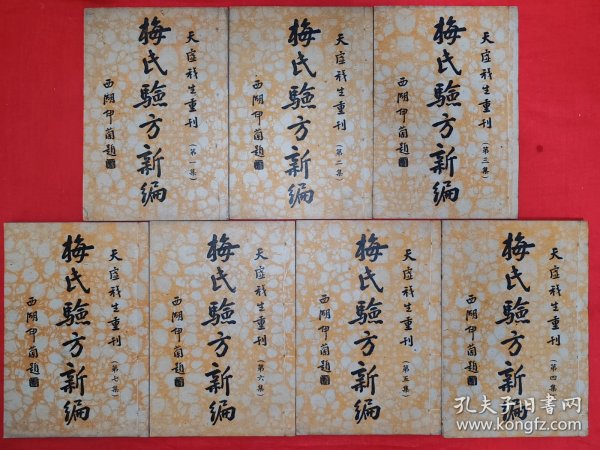 天虛我生重刊(第一集)
梅氏驗方新編
西湖題
天虛我生重刊(第二集)
梅氏驗方新編
西湖題
天虛我生重刊(第三集)
梅氏驗方新編
西湖題
天虛我生重刊(第七集)
梅氏驗方新編
西湖題
天虛我生重刊(第六集)
梅氏驗方新編
西湖題
天虛我生重刊(第五集)
梅氏驗方新編
西湖題
天虛我生重刊(第四集)
梅氏驗方新編
西湖題
孔夫子旧书网
www.kongfz.com